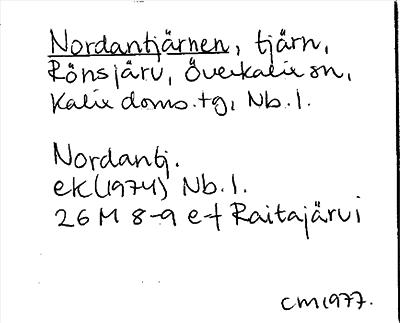 Nordantjärnen, tjärn,
Rönsjärv, Överkalix sn,
Kalix doms.tg, Nb.l.
Nordantj.
ek(1974) Nb.l.
26 M 8-9 e-f Raitajärvi
CM1977.